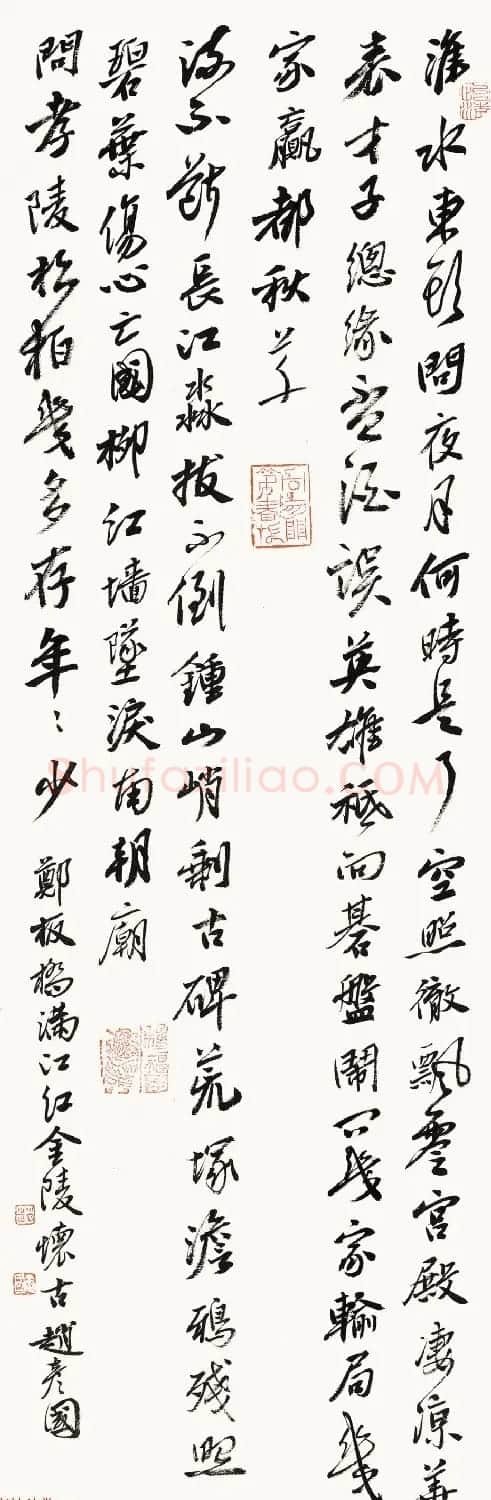 淮水東頭問夜月何時是了空照徹飄零宮殿淒涼華
表才子總緣盃酒誤英雄祗向碁盤鬧問幾家輸局幾
家贏都秋草
流不斷長江淼拔不倒鍾山峭剩古碑荒塚澹鴉殘照
碧葉傷心亡國柳紅墻墜淚南朝廟
問孝陵松柏幾多存年〻少
鄭板橋滿江紅金陵懷古趙彥國
Shufaziliao.COM